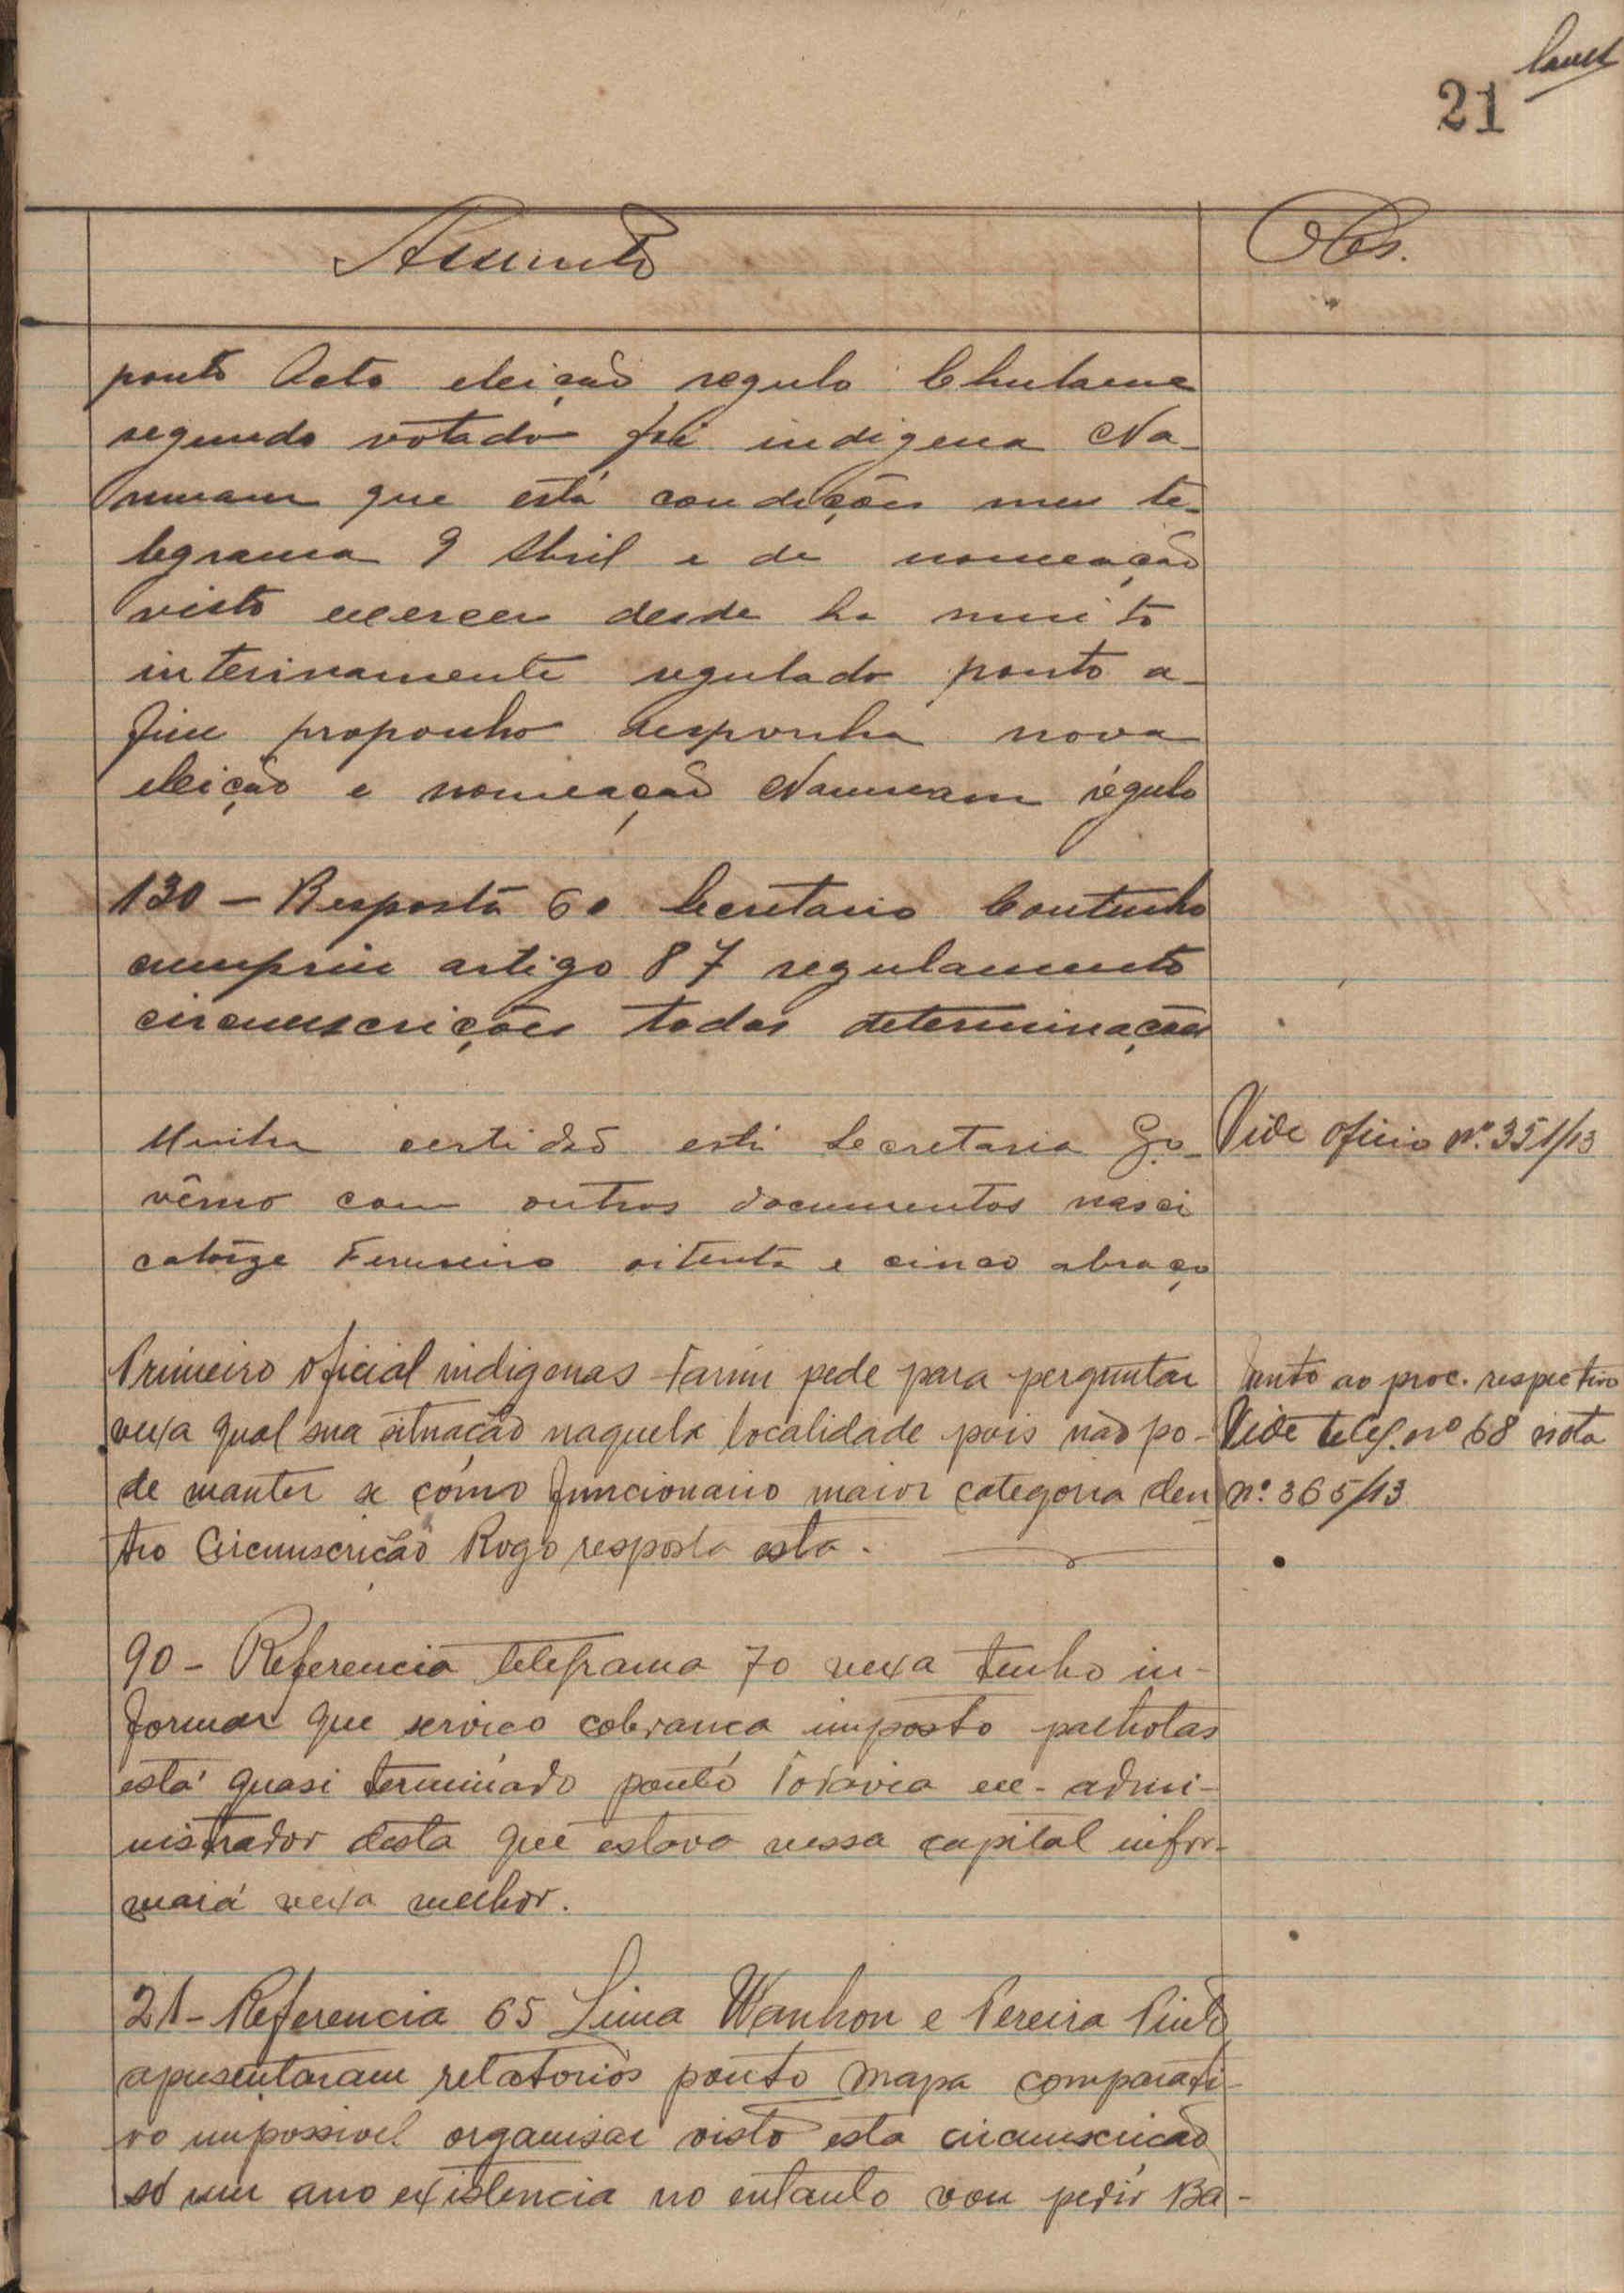 21
Assunto
Obs.
ponto Acto eleição regulo Chulame
segundo votado foi indigena Na-
muam que está condições meu te-
legrama 9 Abril e de nomeação
visto exercer desde ha muito
interinamente regulado ponto a-
fim proponho desponha nova
eleição e nomeação Namuam régulo
130 – Resposta 60 Secretario Coutinho
cumpriu artigo 87 regulamento
circunscrições todas determinações
Minha certidão está Secretaria Go-
vêrno com outros documentos nasci
catorze Fevereiro oitenta e cinco abraço
Vide oficio nº. 351/13
Primeiro oficial indigenas Farim pede para perguntar
vexa qual sua situação naquela localidade pois não po-
de manter se como funcionario maior categoria den
tro Circunscrição Rogo resposta esta.
Junto ao proc. respectivo
Vide teleg. nº 68 nota
nº. 365/13
90 – Referencia telegrama 70 vexa tenho in-
formar que serviço cobrança imposto palhotas
está quasi terminado ponto Todavia ex-admi-
nistrador desta que estava nessa capital infor-
mará vexa melhor.
21 – Referencia 65 Lima Wanhon e Pereira Pinto
apresentaram relatorios ponto Mapa comparati-
vo impossivel organisar visto esta circunscrição
só um ano existencia no entanto vou pedir Ba-